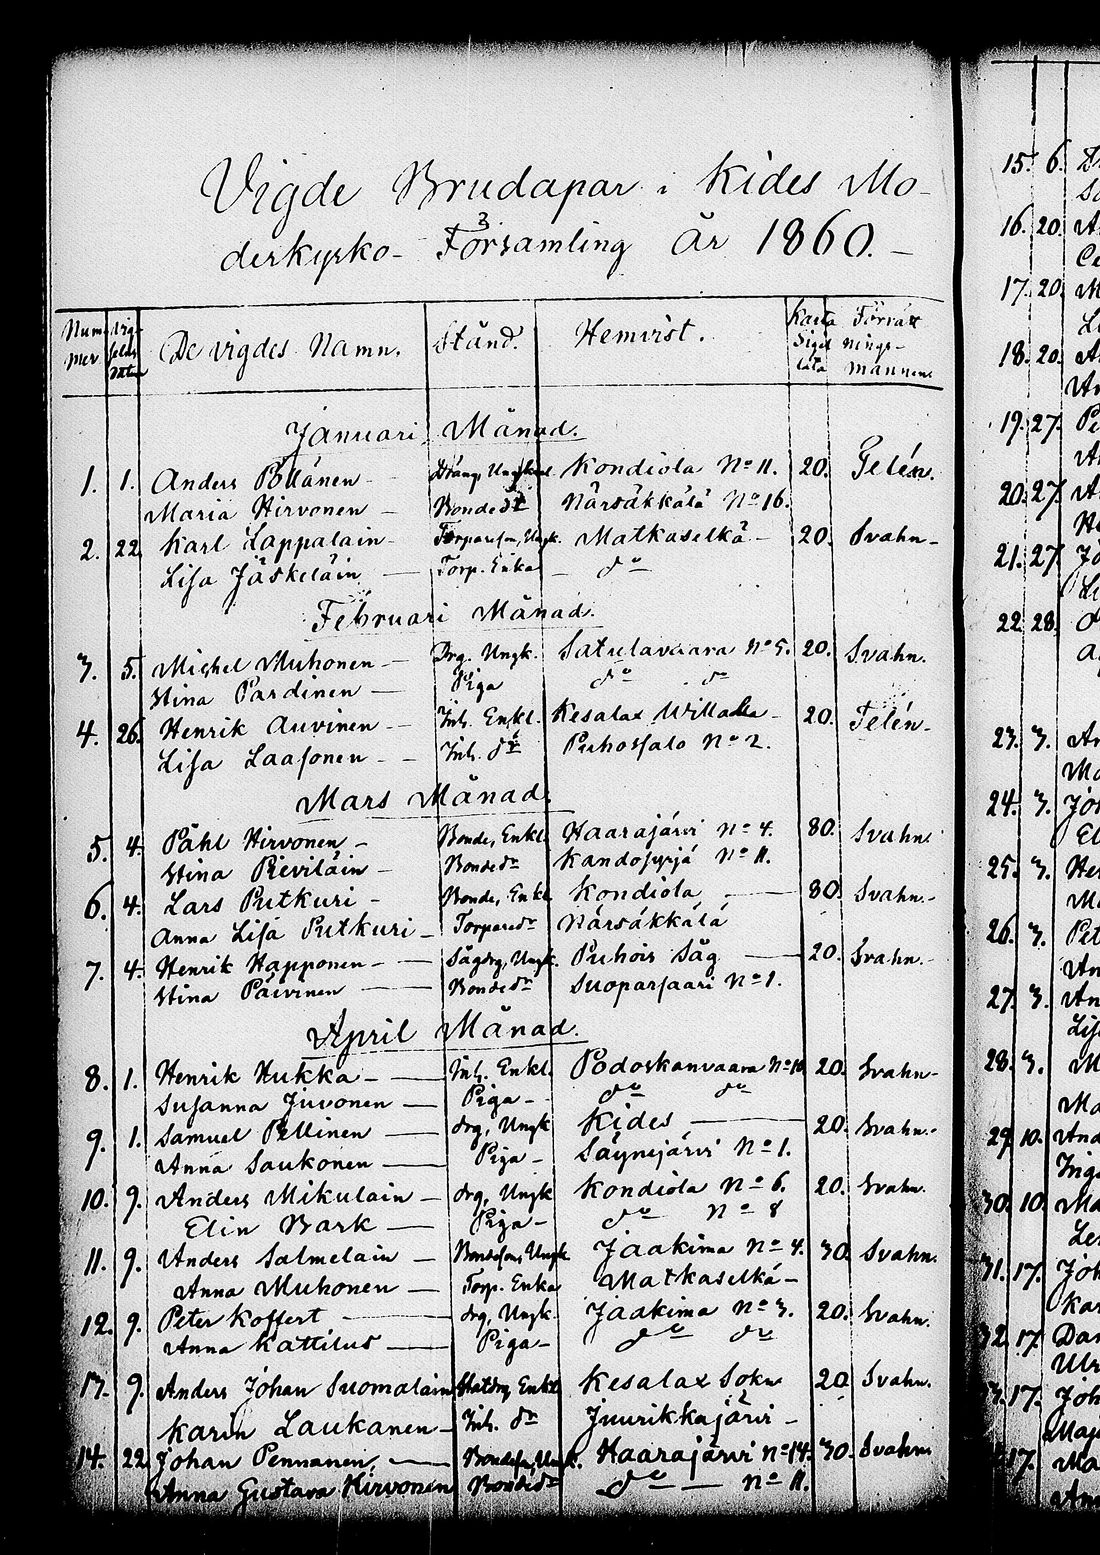 Vigde Brudapar i Kides Mo-
derkyrko- Församling År 1860. -
Num- Vig- De vigdes Namn. Stånd. Hemvist. Karta Förrätt
mer sels Sigil nings-
läta männen.
Januari Månad.
1. 1. Anders Pöllänen - Dräng, Kondiola No 11. 20. Telén.
Maria Hirvonen - Bondedr Närsäkkälä No 16.
2. 22. Karl Lappalain - Torpareson, Ungk. Matkaselkä - 20. Svahn -
Lisa Jäskeläin - Torp. Enka - do
Februari Månad.
3. 5. Michel Muhonen - Drg. Ungk. Satulavaara No 5. 20. Svahn.
Stina Pardinen - Piga do do
4. 26. Henrik Auvinen - Inh. Enkl. Kesalax Willala - 20. Telén -
Lisa Laasonen - Inh. dr Puhossalo No 2.
Mars Månad.
5. 4. Påhl Hirvonen - Bonde, Enkl. Haarajärvi No 4. 80. Svahn.
Stina Pieviläin - Bondedr No 11.
6. 4. Lars Putkuri - Bonde, Enkl Kondiola - 80. Svahn.-
Anna Lisa Putkuri - Torparedr Närsäkkälä
7. 4. Henrik Happonen - Sågdrg, Ungk. Puhois Såg - 20. Svahn.-
Stina Päivinen - Bondedr Suoparsaari No 1.
April Månad.
8. 1. Henrik Hukka - Inh. Enkl. Podoskanvaara No 10. 20. Svahn -
Susanna Juvonen - Piga - do do
9. 1. Samuel Pellinen - drg, Ungk Kides - 20. Svahn.-
Anna Saukonen - Piga - Säynejärvi No 1.
10. 9. Anders Mikulain - drg, Ungk Kondiola No 6. 20. Svahn.
Elin Bark - Piga - do No 8
11. 9. Anders Salmelain - Bondeson, Ungk Jaakima No 4. 30. Svahn.
Anna Muhonen - Torp. Enka Matkaselkä -
12. 9. Peter Koffert - drg, Ungk. Jaakima No 3. 20. Svahn.
Anna Kattilus - Piga - do do
13. 9. Anders Johan Suomalain Statdrg Enkl Kesalax Sokn 20 Svahn.
Karin Laukanen - Inh. dr Juurikkajärvi -
14. 22. Johan Pennanen, - Bondeson, Ungk. Haarajärvi No 14. 30. Svahn
Anna Gustava Hirvonen Bondedr do - No 11.
15. 6.
16. 20.
17. 20.
18. 20.
19. 27.
20. 27.
21. 27.
22. 28.
23. 3.
24. 3.
25. 3.
26. 3.
27. 3.
28. 3.
29. 10.
30. 10.
31. 17.
32. 17.
17.
17.